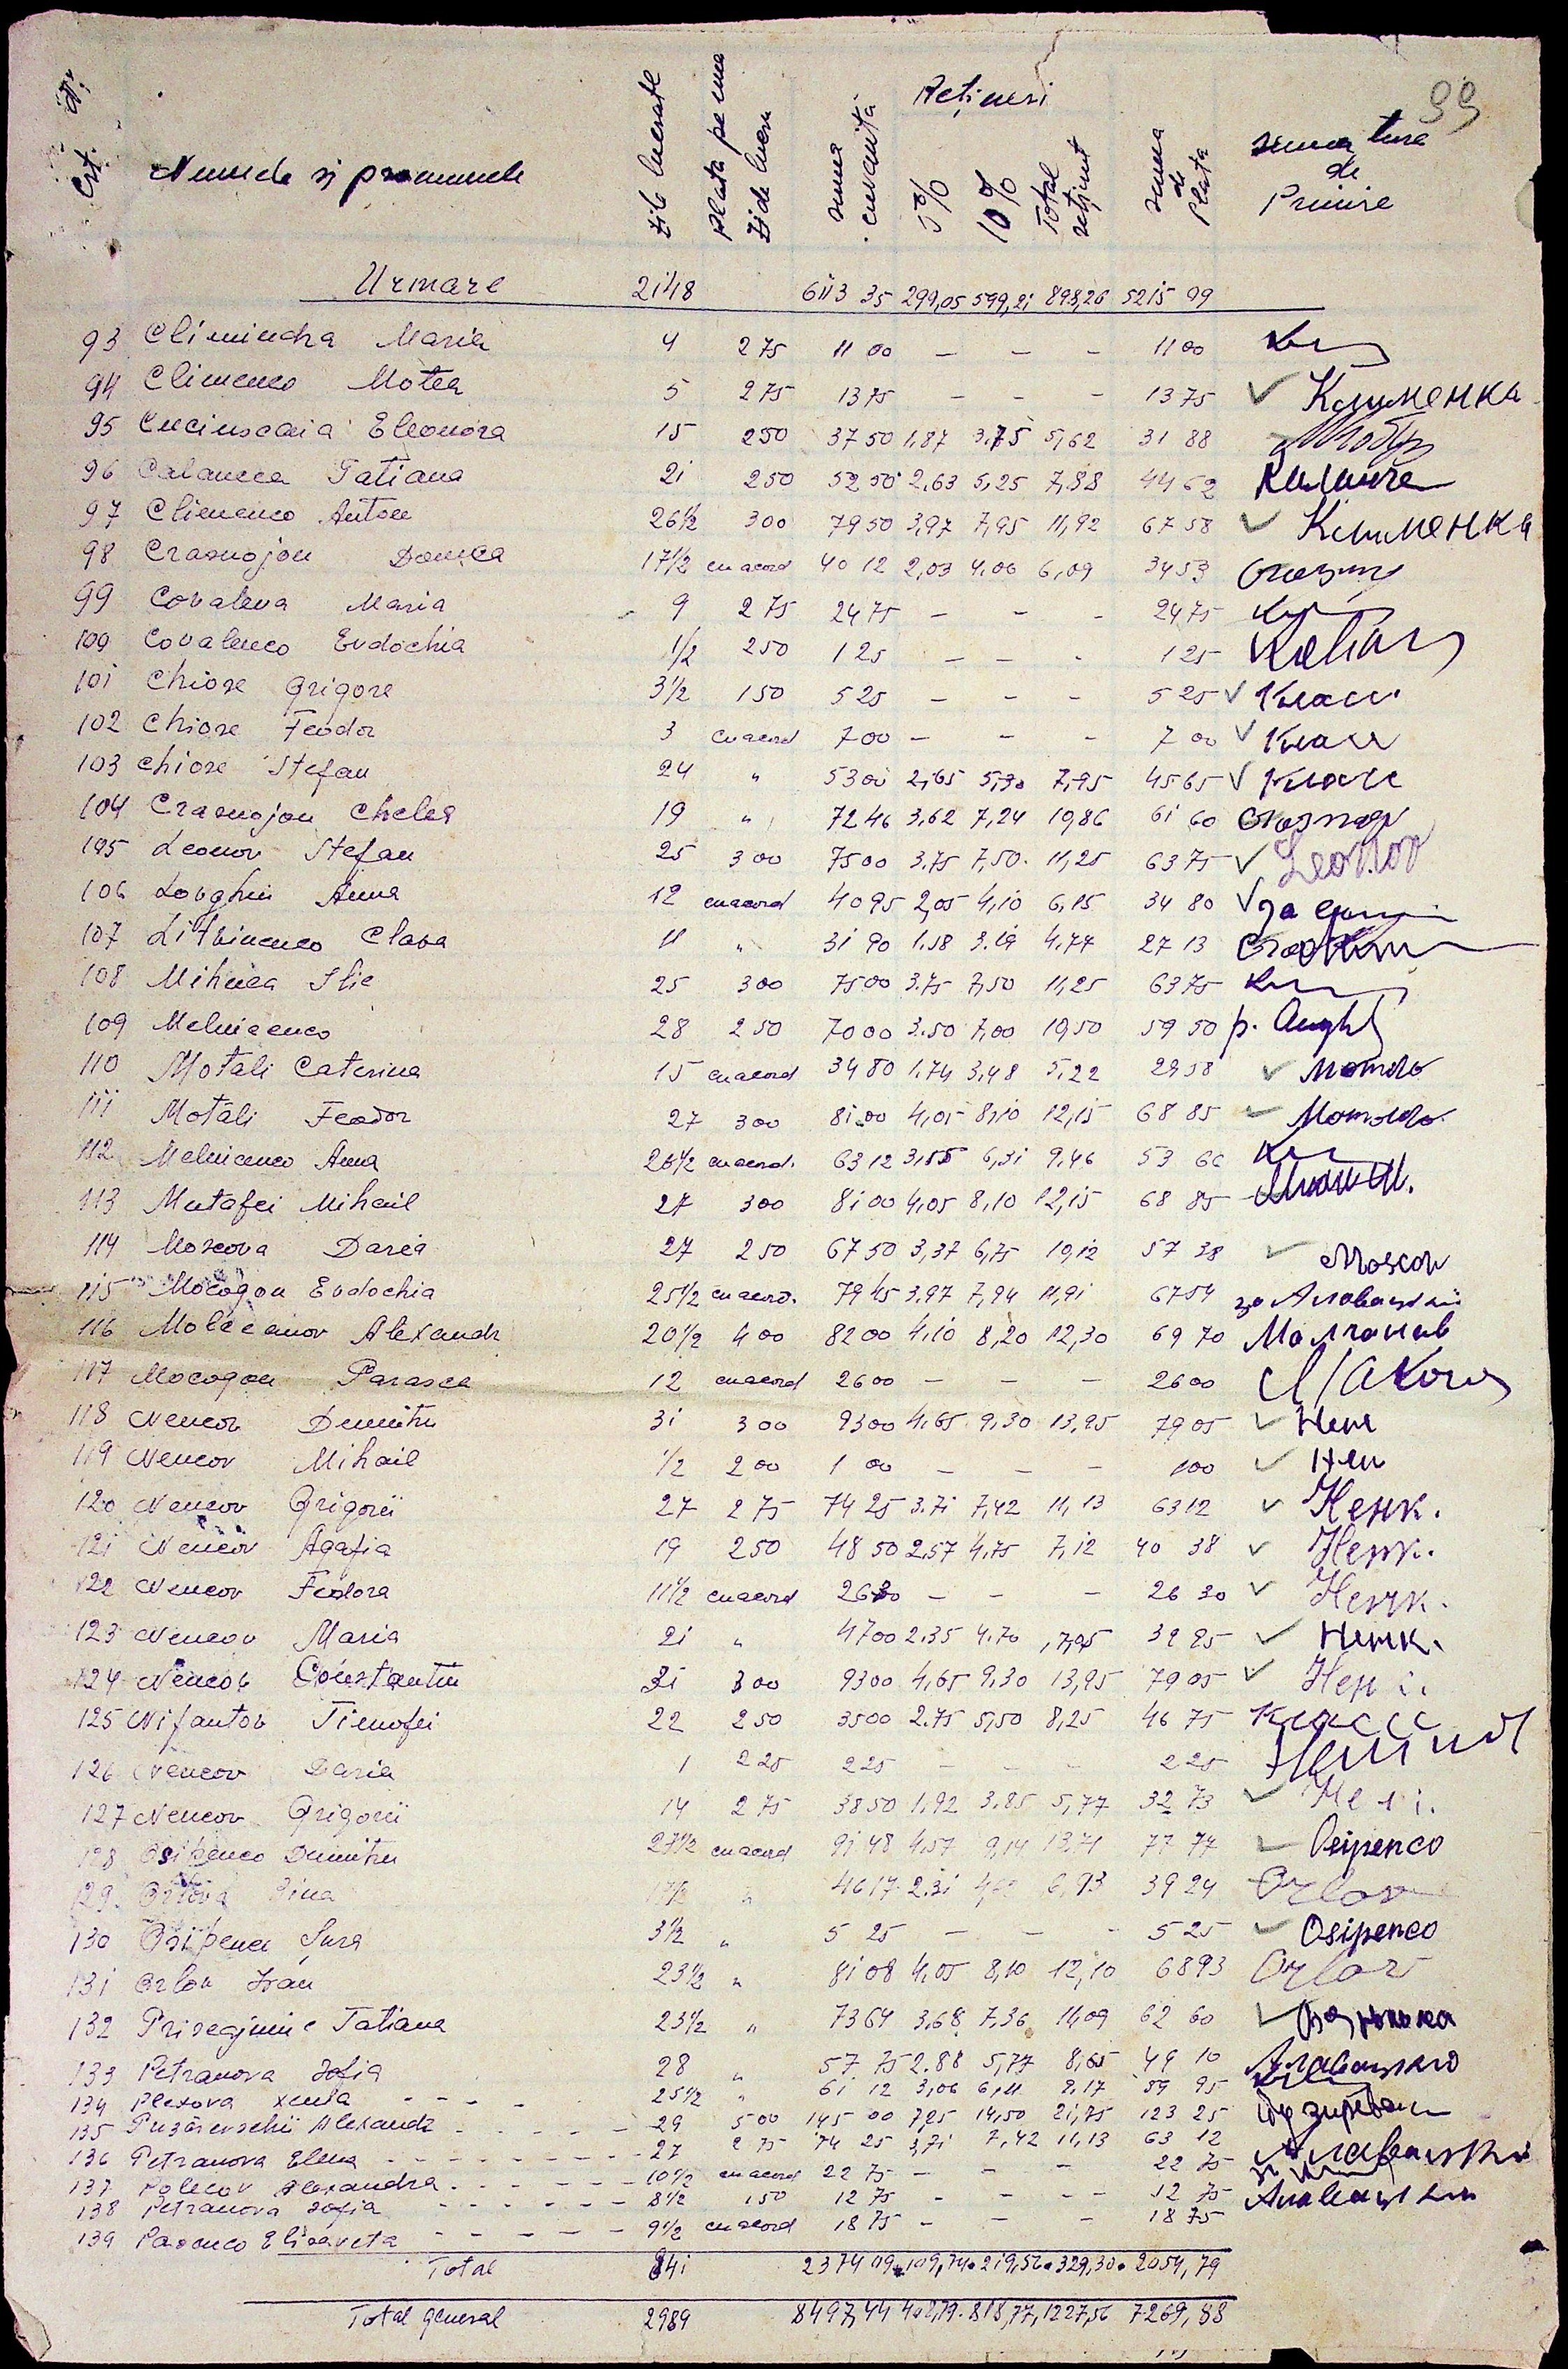 99
Nr. Crt. Numele și pronumele Zile lucrate Plata pe una zi de lucru Suma cuvenită Rețineri 5% 10% Total reținut Suma de Plata Semnatura de Primire
Urmare 2148 6113 35 299,05 599,21 898,26 5215 09
93 Climincha Maria 4 2 75 11 00 — — — 11 00
94 Climenco Motea 5 2 75 13 75 — — — 13 75 Клименка
95 Cucinscaia Eleonora 15 2 50 37 50 1,87 3.75 5,62 31 88
96 Calancea Tatiana 21 2 50 52 50 2.63 5,25 7,88 44 62
97 Climenco Anton 26½ 3 00 79 50 3,97 7,95 11,92 67 58 Клименка
98 Crasnojon Domca 17½ cu acord 40 12 2,03 4,06 6,09 34 53
99 Covaleva Maria 9 2 75 24 75 — — — 24 75
100 Covalenco Evdochia ½ 2 50 1 25 — — — 1 25
101 Chiose Grigore 3½ 1 50 5 25 — — — 5 25
102 Chiose Feodor 3 cu acord 7 00 — — — 7 00
103 Chiose Stefan 24 " 53 00 2,65 5,30 7,95 45 65
104 Crasnojon Chelea 19 " 72 46 3,62 7,24 10,86 61 60
105 Leonov Stefan 25 3 00 75 00 3.75 7,50 11,25 63 75 Leonov
106 Lovghin Anna 12 cu acord 40 95 2,05 4,10 6,15 34 80
107 Litvinenco Clava 11 " 31 90 1.58 3.19 4.77 27 13
108 Mihnea Ilie 25 3 00 75 00 3.75 7,50 11,25 63 75
109 Melnicenco 28 2 50 70 00 3.50 7,00 10,50 59 50
110 Motali Caterina 15 cu acord 34 80 1.74 3,48 5,22 29 58
111 Motali Feodor 27 3 00 81 00 4,05 8,10 12,15 68 85
112 Melnicenco Anna 26½ cu acord. 63 12 3,15 6,31 9.46 53 66
113 Mutafei Mihail 27 3 00 81 00 4,05 8,10 12,15 68 85
114 Moscova Daria 27 2 50 67 50 3,37 6,75 10,12 57 38 Moscov
115 Mocogon Evdochia 25½ cu acord. 79 45 3.97 7,94 11,91 67 54
116 Molceanov Alexandr 20½ 4 00 82 00 4,10 8,20 12,30 69 70 Молчанов
117 Mocogon Parasca 12 cu acord 26 00 — — — 26 00
118 Nencov Dumitru 31 3 00 93 00 4,65 9,30 13,95 79 05 Ненк
119 Nencov Mihail ½ 2 00 1 00 — — — 1 00 Нен
120 Nencov Grigorii 27 2 75 74 25 3.71 7,42 11,13 63 12 Ненк.
121 Nencov Agafia 19 2 50 48 50 2,57 4,75 7,12 40 38 Ненк.
122 Nencov Feodora 11½ cu acord 26 30 — — — 26 30 Ненк.
123 Nencov Maria 21 " 47 00 2.35 4.70 7,05 39 95 Ненк.
124 Nencov Constantin 31 3 00 93 00 4,65 9,30 13,95 79 05
125 Nifantov Timofei 22 2 50 35 00 2.75 5,50 8,25 46 75
126 Nencov Daria 1 2 25 2 25 — — — 2 25
127 Nencov Grigorii 14 2 75 38 50 1,92 3,85 5,77 32 73
128 Osipenco Dumitru 27½ cu acord 91 48 4,57 9,14 13,71 77 77 Osipenco
129 Orlova Zina 17½ " 46 17 2.31 4,62 6,93 39 24 Orlov
130 Osipenco Șura 3½ " 5 25 — — — 5 25 Osipenco
131 Orlov Ivan 23½ " 81 08 4,05 8,10 12,10 68 93 Orlov
132 Prisegjnuic Tatiana 23½ " 73 64 3,68 7,36 11,09 62 60
133 Petranova Sofia 28 " 57 75 2.88 5,77 8,65 49 10
134 Plexova Xenta - - - 25½ " 61 12 3,06 6,11 9,17 59 95
135 Puzărevschii Alexandr - - - 29 5 00 145 00 7,25 14,50 21,75 123 25
136 Petranova Elena - - - 27 2 75 74 25 3,71 7,42 11,13 63 12
137 Polecov Alexandra - - - 10½ cu acord 22 75 — — — 22 75
138 Petranova Sofia - - - 8½ 1 50 12 75 — — — 12 75
139 Pasenco Elisaveta - - - 9½ cu acord 18 75 — — — 18 75
Total 841 2374 09 109,74 219,56 329,30 2054,79
Total general 2989 8497,44 408,79 818,77 1227,56 7269,88